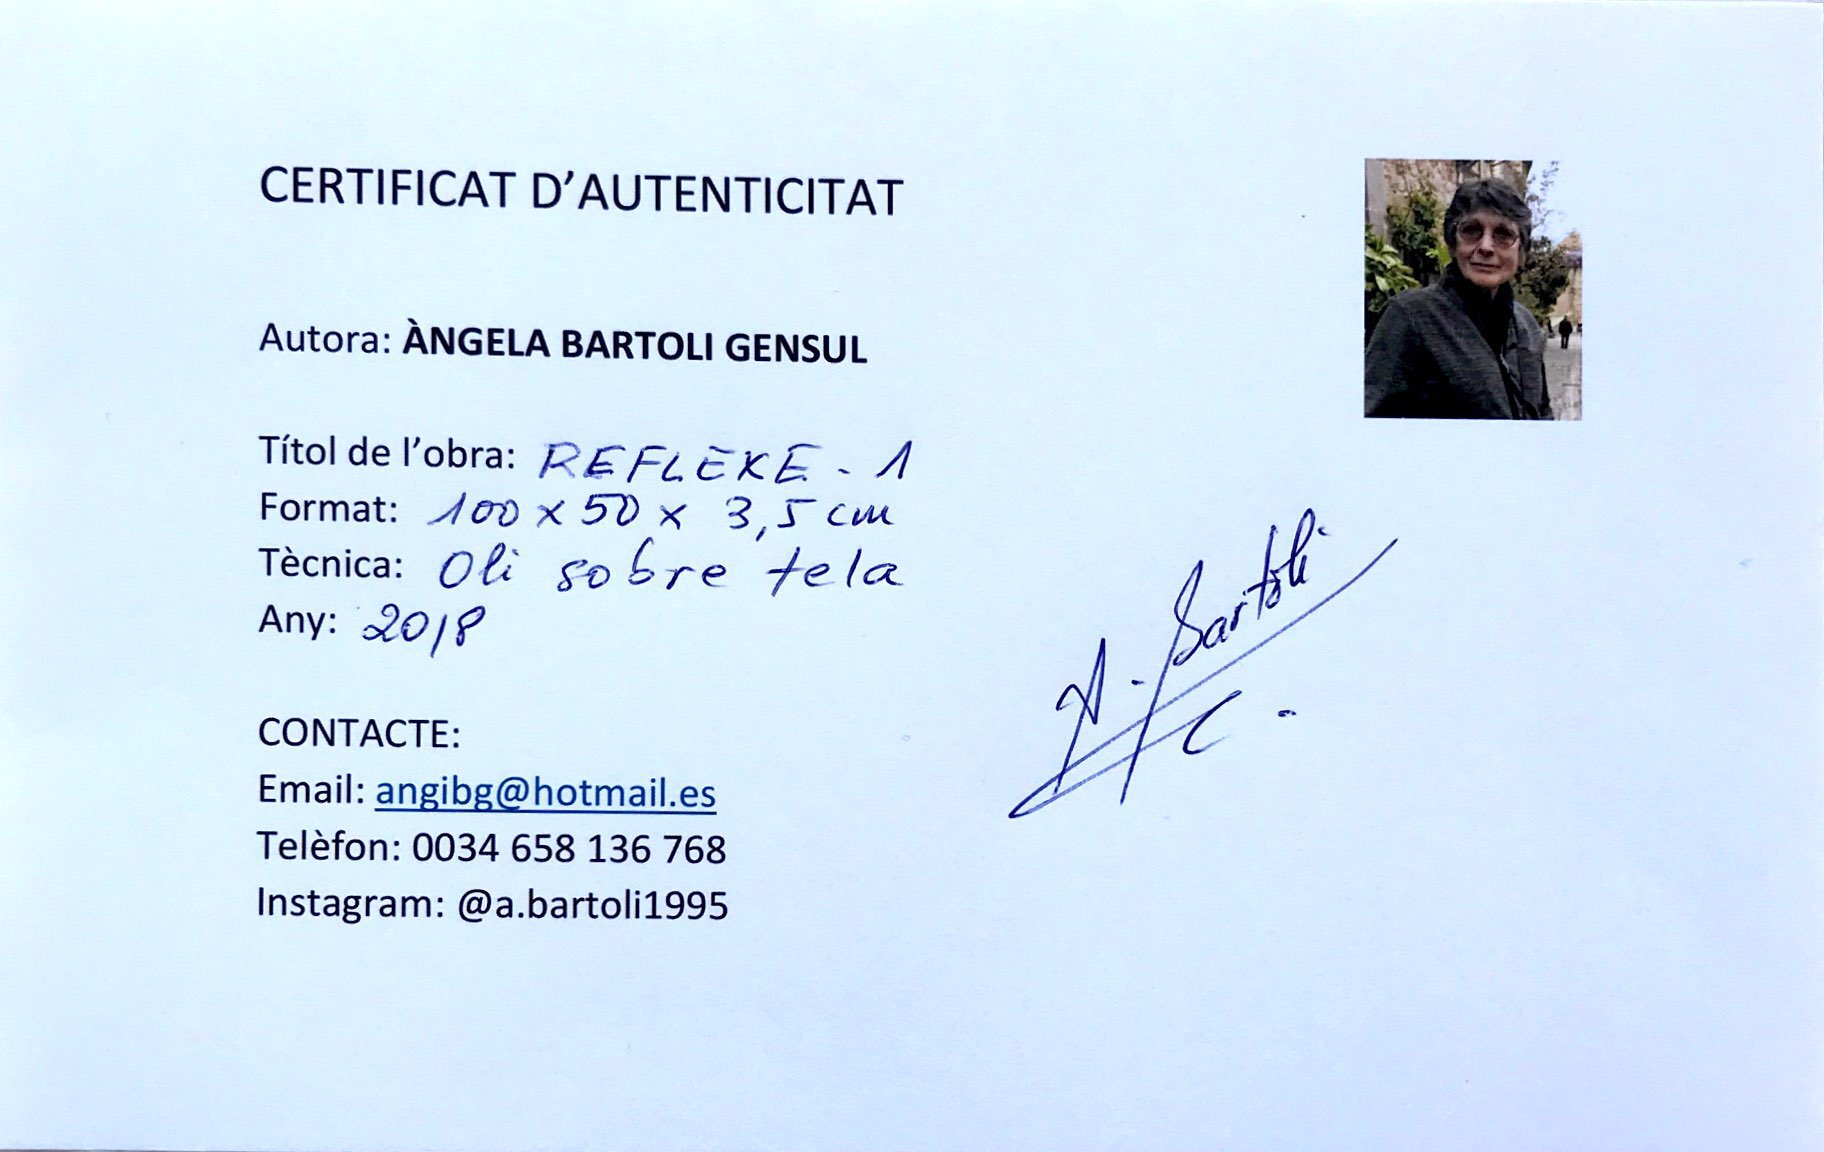 CERTIFICAT D'AUTENTICITAT
Autora: ÀNGELA BARTOLI GENSUL
Títol de l'obra: REFLEXE - 1
Format: 100 x 50 x 3,5 cm
Tècnica: Oli sobre tela
Any: 2018
A. Bartoli
CONTACTE:
Email: angibg@hotmail.es
Telèfon: 0034 658 136 768
Instagram: @a.bartoli1995